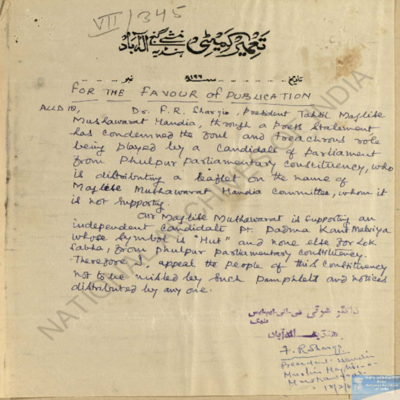 VII/345
تعمیر کمیٹی
الہ آباد
تاریخ
نمبر
FOR THE FAVOUR of PUBLICATION
ALLD 18, Dr. F.R. Shargie, President Tahsil Majlise
Mushawarat Handia, through a press statement
has condemned the foul and treachrous role
being played by a candidate of Parliament
from Phulpur Parliamentary constituency, who
is distributing a leaflet on the name of
Majlise Mushawarat Handia committee, whom it
is not supporting.
Our Majlise Mushawarat is supporting an
independent candidate Pt. Padma Kant Malviya
whose symbol is "Hut" and none else for Lok
Sabha, from Phulpur parliamentary constituency.
Therefore I, appeal the people of this constituency
not to be misled by such pamphlets and notices
distributed by any one.
ڈاکٹر
ہنڈیہ الہ آباد
President Handia
Muslim Majlise
Mushawarat
NATIONAL ARCHIVES OF INDIA